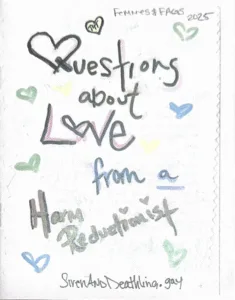 Femmes & FAGS 2025
Questions
about
Love
from a
Harm
Reductionist
SirenAndDeathling.gay